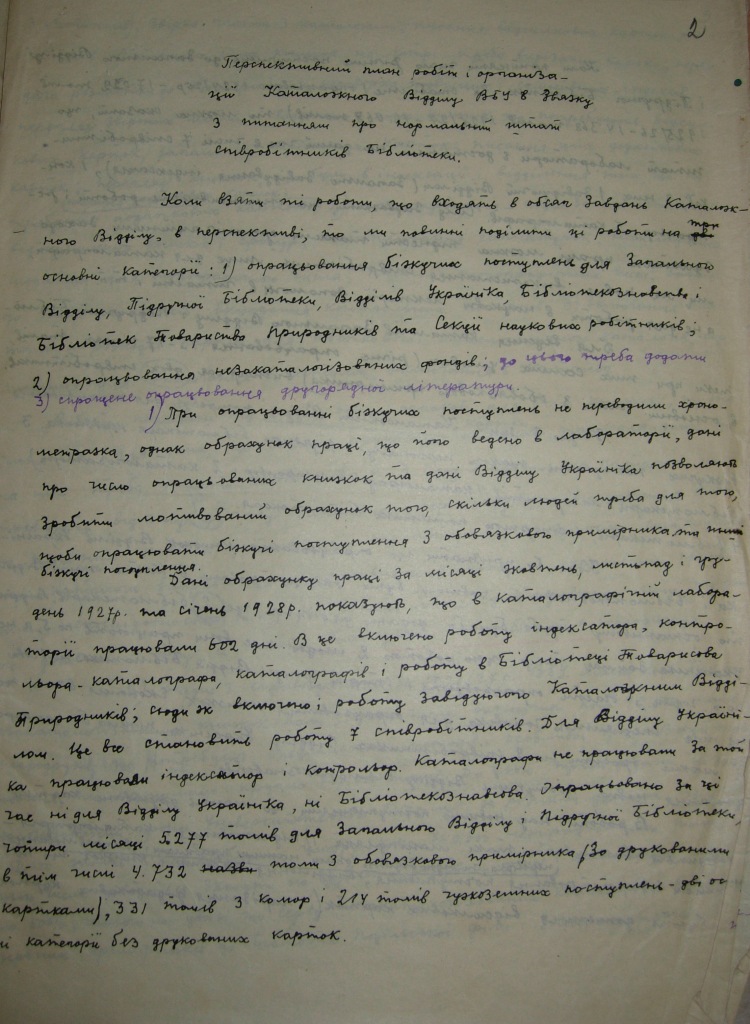 2
Перспективний план робіт і організа-
ції Каталожного Відділу ВБУ в звязку
з питанням про нормальний штат
співробітників Бібліотеки.
Коли взяти ті роботи, що входять в обсяг завдань Каталож-
ного Відділу, в перспективі, то ми повинні поділити ці роботи на три
основні категорії: 1) опрацьовання біжучих поступлень для Загального
Відділу, Підручної Бібліотеки, Відділів Україніка, Бібліотекознавства і
Бібліотек Товариства Природників та Секції наукових робітників;
2) опрацьовання незакаталогізованих фондів; до цього треба додати
3) спрощене опрацьовання другорядної літератури.
1) При опрацьованні біжучих поступлень не переводили хроно-
метража, однак обрахунок праці, що його ведено в лабораторії, дані
про число опрацьованих книжок та дані Відділу Україніка позволяють
зробити мотивований обрахунок того, скільки людей треба для того,
щоби опрацювати біжучі поступлення з обовязкового примірника та інші
біжучі поступлення.
Дані обрахунку праці за місяці жовтень, листопад і гру-
день 1927р. та січень 1928р. показують, що в каталографічній лабора-
торії працювали 602 дні. В це включено роботу індексатора, контро-
льора-каталографа, каталографів і роботу в Бібліотеці Товариства
Природників; сюди ж включено і роботу завідуючого Каталожним Відді-
лом. Це все становить роботу 7 співробітників. Для Відділу Україні-
ка працювали індексатор і контрольор. Каталографи не працювали за той
час ні для Відділу Україніка, ні Бібліотекознавства. Опрацьовано за ці
чотири місяці 5.277 томів для Загального Відділу і Підручної Бібліотеки,
в тім числі 4.732 назви томи з обовязкового примірника (зо друкованими
картками), 331 томів з комор і 214 томів чужоземних поступлень - дві ос
ні категорії без друкованих карток.